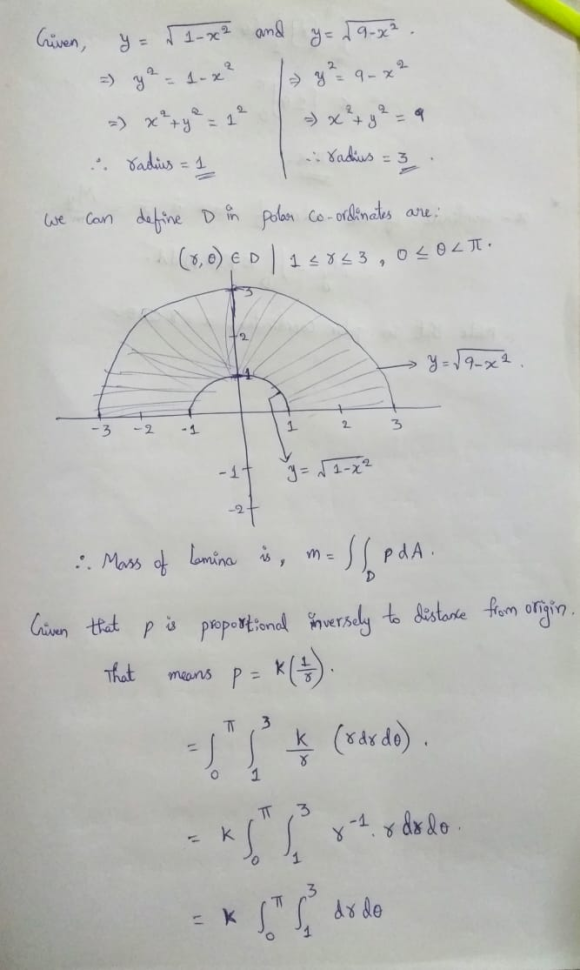 Given, y = √1-x² and y = √9-x² .
⇒ y² = 1-x² ⇒ y² = 9-x²
⇒ x²+y² = 1² ⇒ x²+y² = 9
∴ radius = 1 ∴ radius = 3 .
we can define D in polar co-ordinates are:
(r, θ) ∈ D | 1 ≤ r ≤ 3 , 0 ≤ θ < π .
3
2
1
y = √9-x²
-3 -2 -1 1 2 3
-1 y = √1-x²
-2
∴ Mass of lamina is, m = ∬_D ρ dA .
Given that ρ is proportional inversely to distance from origin.
That means ρ = K(1/r) .
= ∫_0^π ∫_1^3 k/r (r dr dθ) .
= K ∫_0^π ∫_1^3 r⁻¹ . r dr dθ .
= K ∫_0^π ∫_1^3 dr dθ